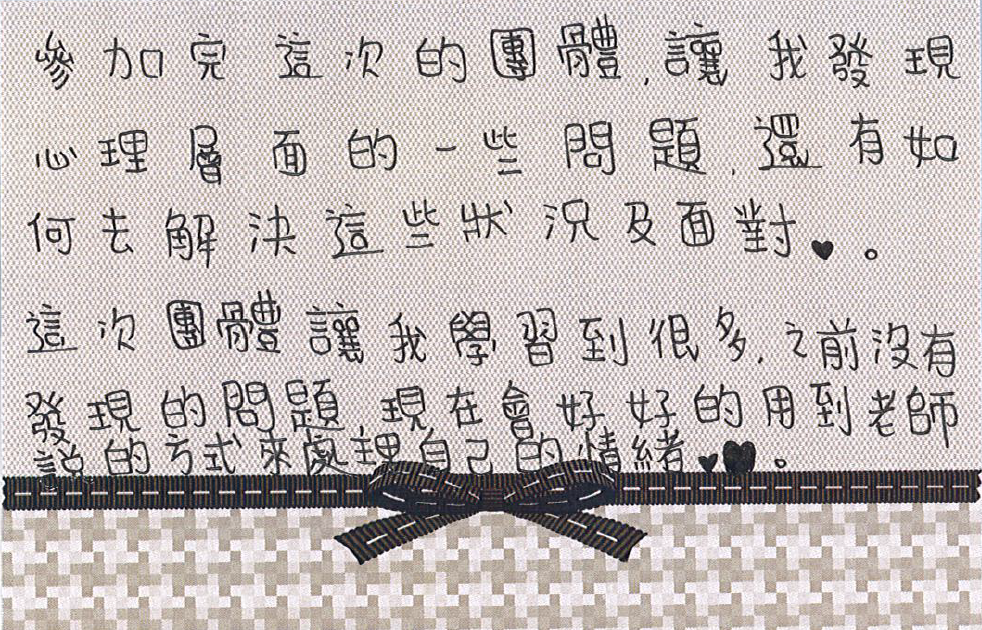 參加完這次的團體,讓我發現
心理層面的一些問題,還有如
何去解決這些狀況及面對♥。
這次團體讓我學習到很多,之前沒有
發現的問題現在會好好的用到老師
說的方式來處理自己的情緒♥♥。